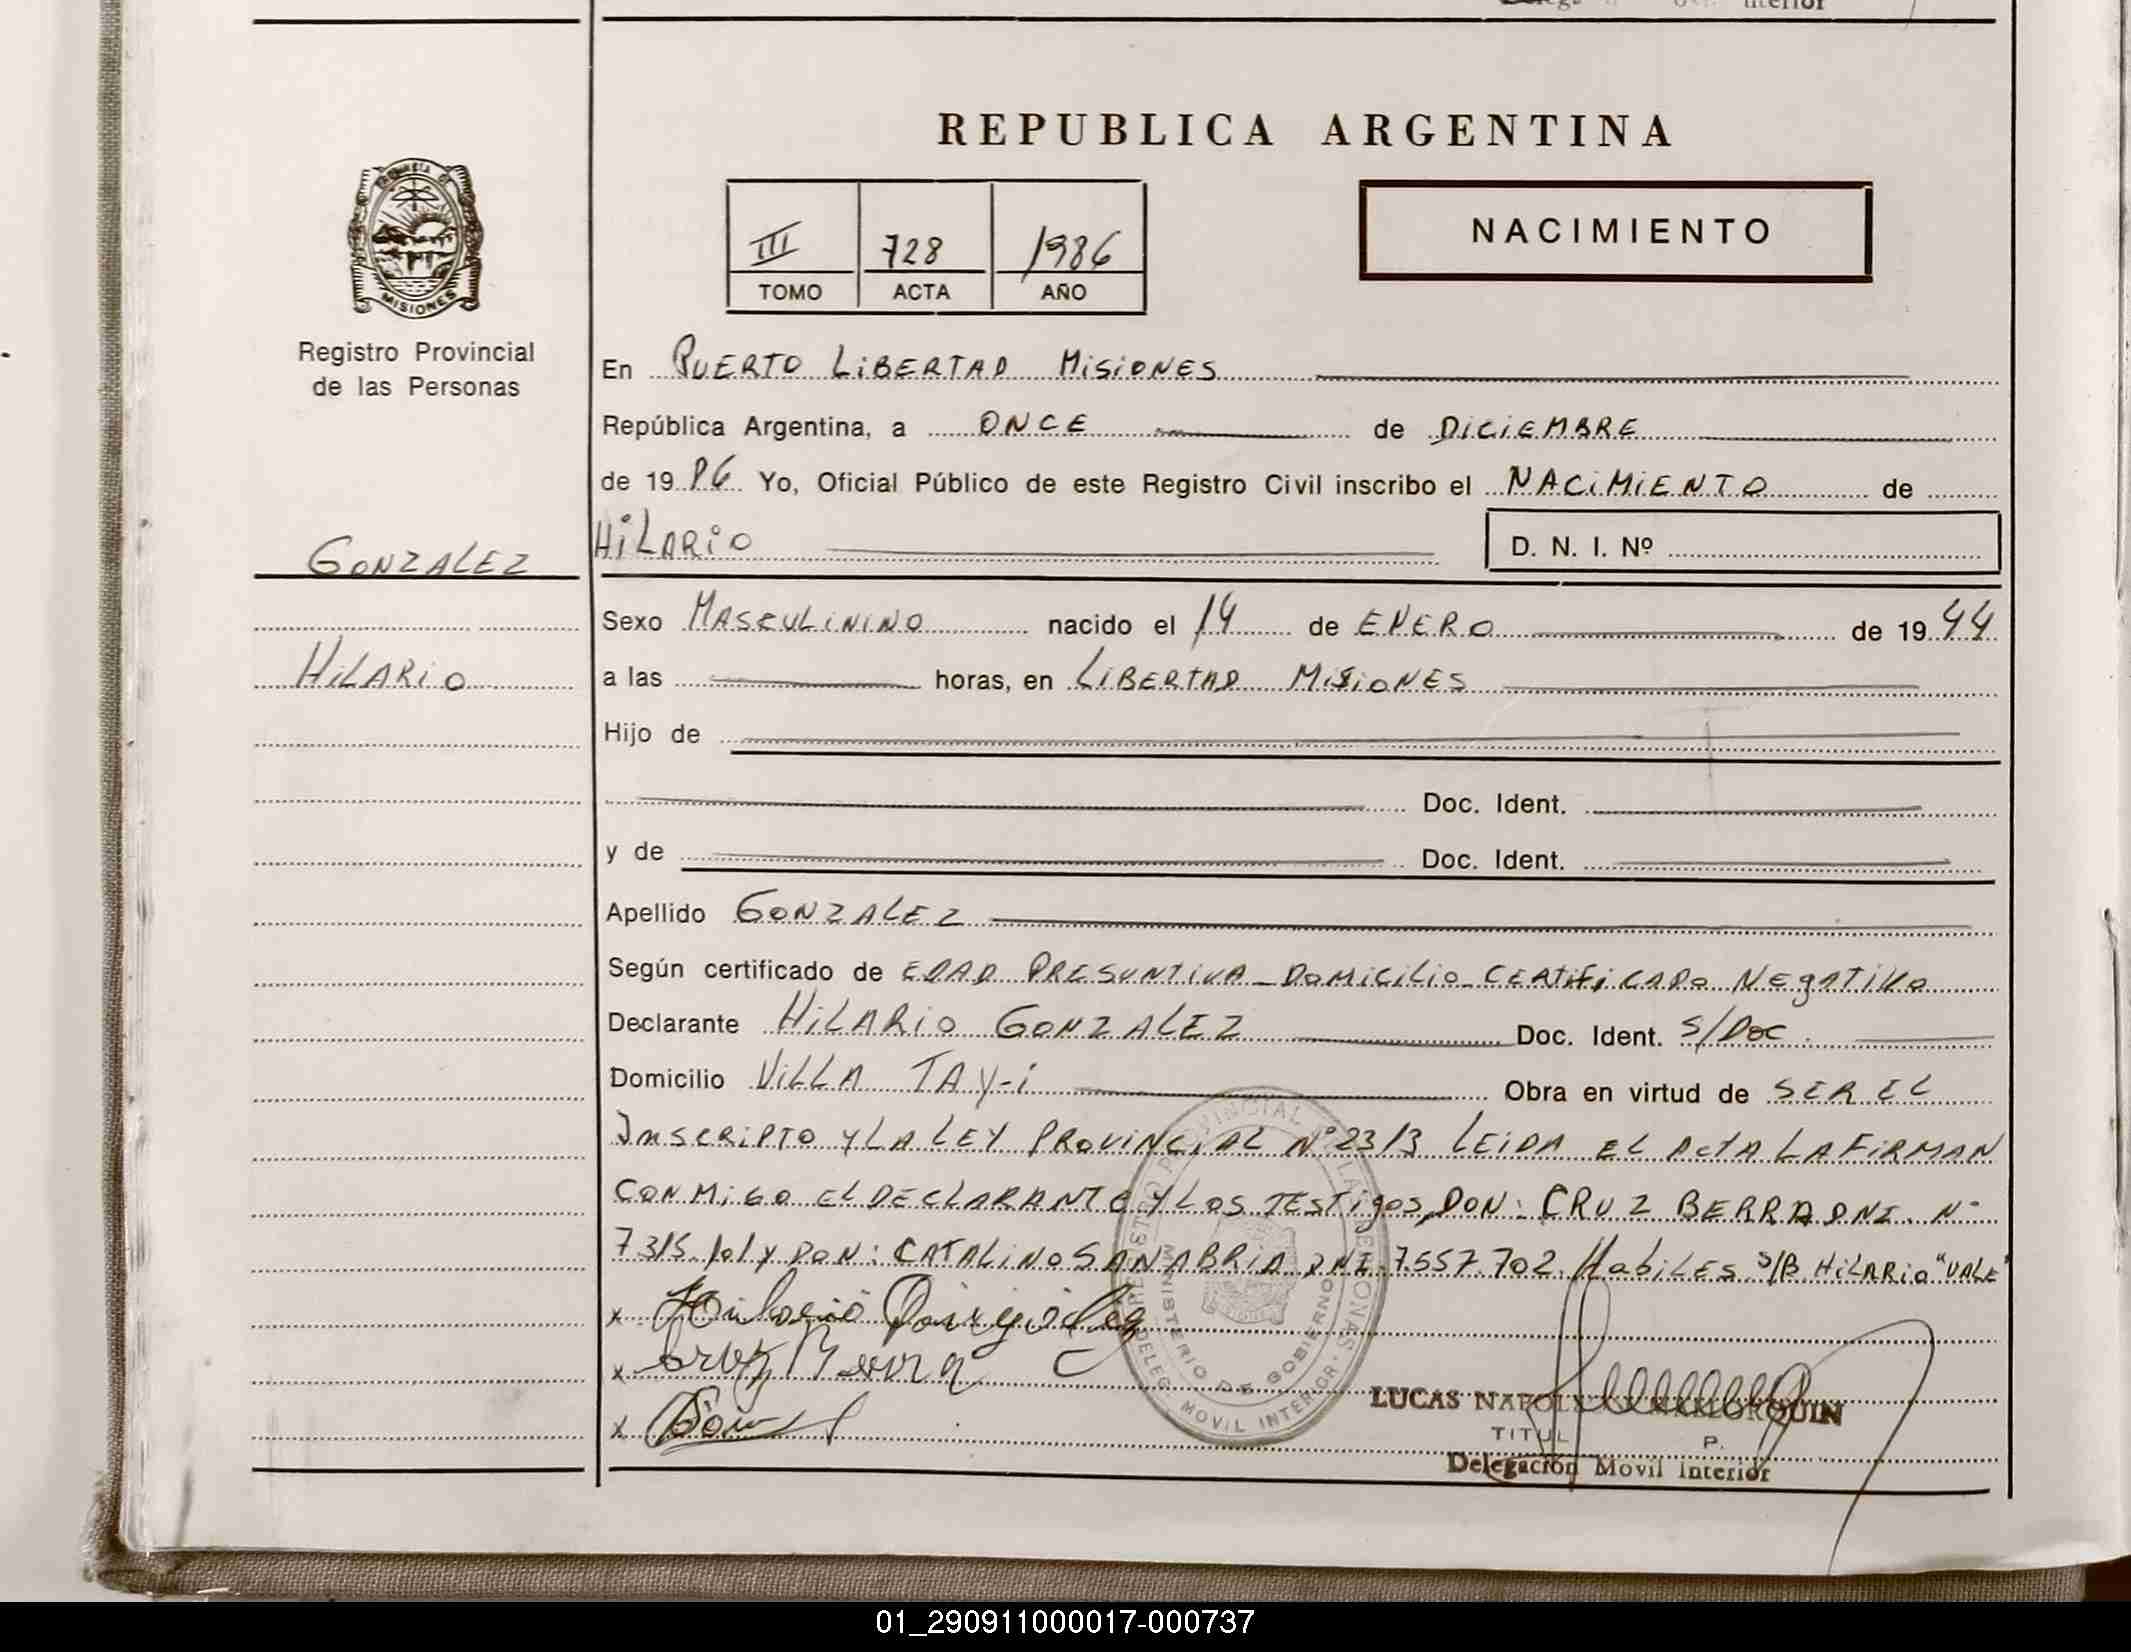 REPUBLICA ARGENTINA
III 728 1986
TOMO ACTA AÑO
NACIMIENTO
PROVINCIA DE
MISIONES
Registro Provincial
de las Personas
GONZALEZ
HILARIO
En PUERTO LIBERTAD MISIONES
República Argentina, a ONCE de DICIEMBRE
de 19 86 Yo, Oficial Público de este Registro Civil inscribo el NACIMIENTO de
HILARIO D. N. I. Nº
Sexo MASCULININO nacido el 14 de ENERO de 19 44
a las horas, en LIBERTAD MISIONES
Hijo de
Doc. Ident.
y de Doc. Ident.
Apellido GONZALEZ
Según certificado de EDAD PRESUNTIVA - DOMICILIO - CERTIFICADO NEGATIVO
Declarante HILARIO GONZALEZ Doc. Ident. S/DOC.
Domicilio VILLA TAY-i Obra en virtud de SER EL
INSCRIPTO Y LA LEY PROVINCIAL Nº 2313 LEIDA EL ACTA LA FIRMAN
CONMIGO EL DECLARANTE Y LOS TESTIGOS, DON: CRUZ BERRA DNI. Nº
7315.101 Y DON: CATALINO SANABRIA DNI. 7.557.702. HABILES. S/B HILARIO "VALE"
x Hilario
x Cruz Berra
x
REGISTRO PROVINCIAL DE LAS PERSONAS
MINISTERIO DE GOBIERNO
DELEG. MOVIL INTERIOR
LUCAS MALLORQUIN
TITUL P.
Delegación Movil Interior
01_290911000017-000737